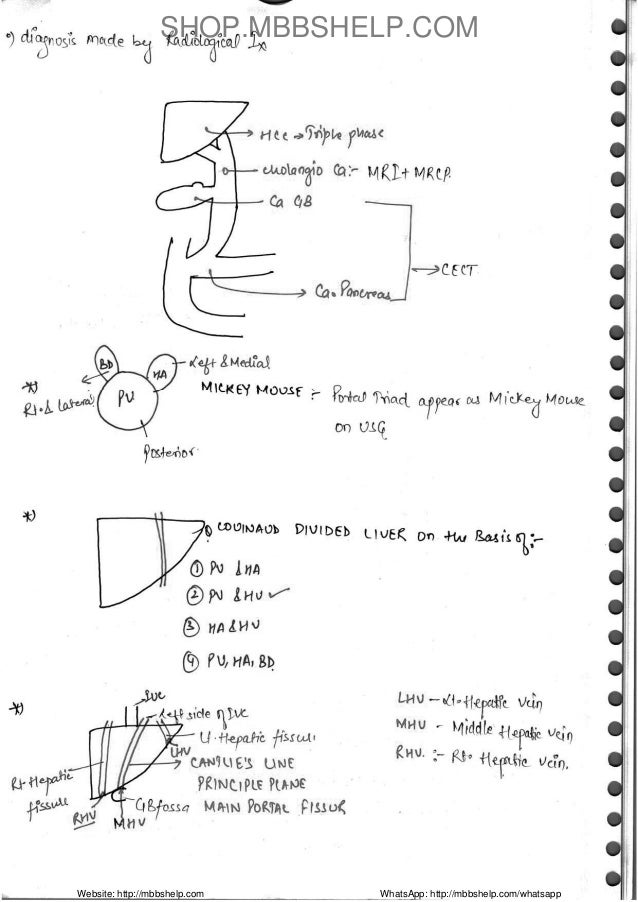 SHOP.MBBSHELP.COM
diagnosis made by Radiological Ix
HCC → Triple phase
cholangio Ca:- MRI + MRCP.
Ca GB
CECT
Ca. Pancreas
BD
HA
Left & Medial
PV
Rt. & lateral
Posterior
MICKEY MOUSE :- Portal Triad appear as Mickey Mouse
on USG
COUINAUD DIVIDED LIVER on the Basis of :-
① PV & HA
② PV & HV ✓
③ HA & HV
④ PV, HA, BD.
IVC
Left side of IVC
Lt. Hepatic fissure
LHV
CANTLIE'S LINE
PRINCIPLE PLANE
GB fossa MAIN PORTAL FISSUR
Rt Hepatic
fissure
RHV
MHV
LHV - Lt. Hepatic Vein
MHV - Middle Hepatic vein
RHV. :- Rt. Hepatic vein.
Website: http://mbbshelp.com
WhatsApp: http://mbbshelp.com/whatsapp